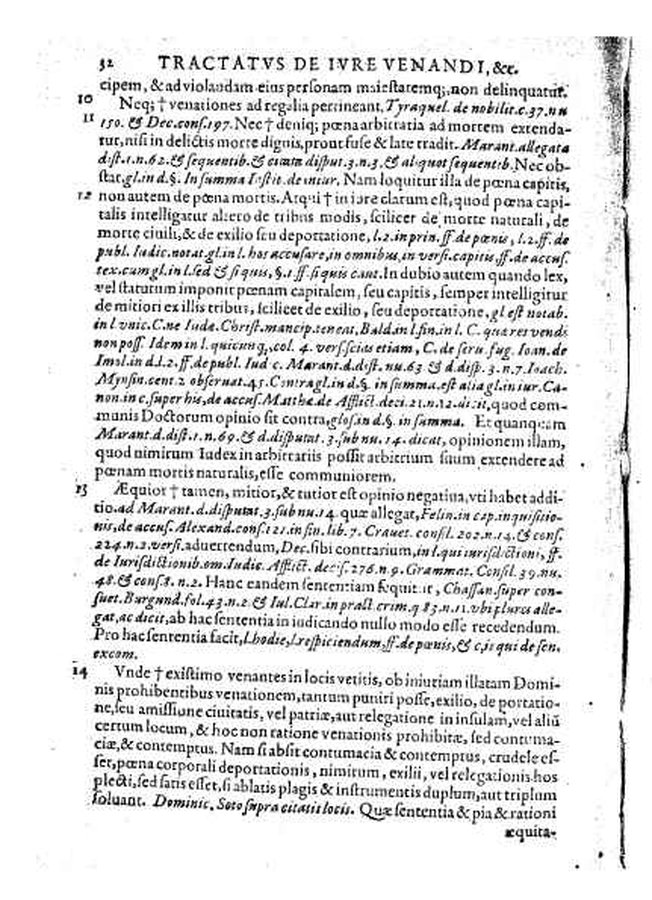 32 TRACTATVS DE IVRE VENANDI, &c.
cipem, & ad violandam eius personam maiestatemq;, non delinquatur.
10 Neq; † venationes ad regalia pertineant, Tyraquel. de nobilit. c. 37. nu
11 150. & Dec. cons. 197. Nec † deniq; pœna arbitraria ad mortem extenda-
tur, nisi in delictis morte dignis, prout fuse & late tradit. Marant. allegata
dist. 1. n. 62. & sequentib. & citata disput. 3. n. 3, & aliquot sequentib. Nec ob-
stat, gl. in d. §. In summa Instit. de iniur. Nam loquitur illa de pœna capitis,
12 non autem de pœna mortis. Atqui † in iure clarum est, quod pœna capi-
talis intelligatur altero de tribus modis, scilicet de morte naturali, de
morte ciuili, & de exilio seu deportatione, l. 2. in prin. ff. de pœnis, l. 2. ff. de
publ. Iudic. not at. gl. in l. hos accusare, in omnibus, in versi. capitis, ff. de accus.
tex. cum gl. in l. sed & si quis, §. 1. ff. si quis caut. In dubio autem quando lex,
vel statutum imponit pœnam capitalem, seu capitis, semper intelligitur
de mitiori ex illis tribus, scilicet de exilio, seu deportatione, gl est notab.
in l. vnic. C. ne Iudæ. Christ. mancip. teneat, Bald. in l. fin. in l. C. quæ res vendi
non poss. Idem in l. quicunq;, col. 4. vers. scias etiam, C. de seru. fug. Ioan. de
Imol. in d. l. 2. ff. de publ. Iud c. Marant. d. dist. nu. 63 & d. disp. 3. n. 7. Ioach.
Mynsin. cent. 2 obseruat. 45. Contra gl. in d. §. in summa. est alia gl. in iur. Ca-
non. in c. super his, de accus. Matthæ. de Afflict. deci. 21. n. 12. dicit, quod com-
munis Doctorum opinio sit contra, glos. in d. §. in summa. Et quanquam
Marant. d. dist. 1. n. 69. & d. disputat. 3. sub nu. 14. dicat, opinionem illam,
quod nimirum Iudex in arbitrariis possit arbitrium suum extendere ad
pœnam mortis naturalis, esse communiorem.
13 Æquior † tamen, mitior, & tutior est opinio negatiua, vti habet addi-
tio. ad Marant. d. disputat. 3. sub nu. 14. quæ allegat, Felin. in cap. inquisitio-
nis, de accus. Alexand. cons. 121. in fin. lib. 7. Crauet. consil. 202. n. 14. & cons.
224. n. 2. versi. aduertendum, Dec. sibi contrarium, in l. qui iurisdictioni, ff.
de Iurisdictionib. om. Iudic. Afflict. decis. 276. n. 9. Grammat. Consil. 39. nu.
48. & cons. 8. n. 2. Hanc eandem sententiam sequitur, Chassan. super con-
suet. Burgund. fol. 43. n. 2. & Iul. Clar. in pract. crim. q 83. n. 11. vbi plures alle-
gat, ac dicit, ab hac sententia in iudicando nullo modo esse recedendum.
Pro hac sententia facit, l. hodie, l. respiciendum, ff. de pœnis, & c, is qui de sen.
excom.
14 Vnde † existimo venantes in locis vetitis, ob iniuriam illatam Domi-
nis prohibentibus venationem, tantum puniri posse, exilio, de portatio-
ne, seu amissione ciuitatis, vel patriæ, aut relegatione in insulam, vel aliũ
certum locum, & hoc non ratione venationis prohibitæ, sed contuma-
ciæ, & contemptus. Nam si absit contumacia & contemptus, crudele es-
set, pœna corporali deportationis, nimirum, exilii, vel relegationis hos
plecti, sed satis esset, si ablatis plagis & instrumentis duplum, aut triplum
soluant. Dominic. Soto supra citatis locis. Quæ sententia & pia & rationi
æquita-